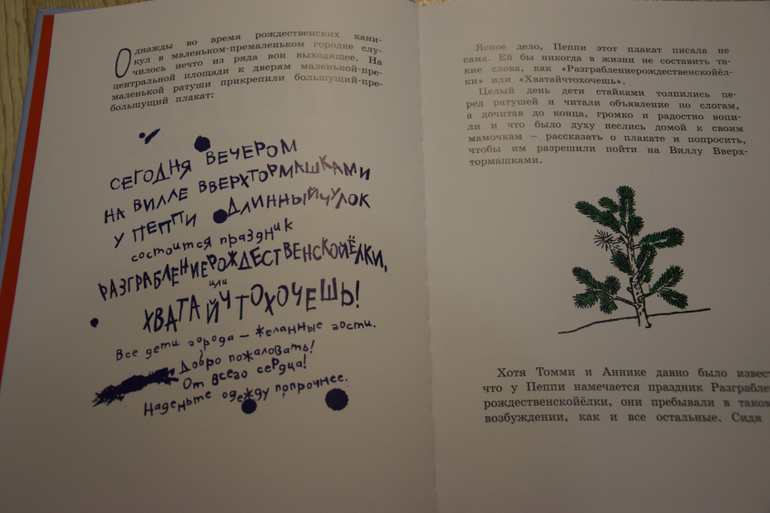 Однажды во время рождественских кани-
кул в маленьком-премаленьком городке слу-
чилось нечто из ряда вон выходящее. На
центральной площади к дверям маленькой-пре-
маленькой ратуши прикрепили большущий-пре-
большущий плакат:
СЕГОДНЯ ВЕЧЕРОМ
НА ВИЛЛЕ ВВЕРХТОРМАШКАМИ
У ПЕППИ ДЛИННЫЙЧУЛОК
состоится праздник
РАЗГРАБЛЕНИЕРОЖДЕСТВЕНСКОЙЁЛКИ,
или
ХВАТАЙЧТОХОЧЕШЬ!
Все дети города — желанные гости.
Добро пожаловать!
От всего сердца!
Наденьте одежду попрочнее.
Ясное дело, Пеппи этот плакат писала не
сама. Ей бы никогда в жизни не составить та-
кие слова, как «Разграблениерождественскойёл-
ки» или «Хватайчтохочешь».
Целый день дети стайками толпились пе-
ред ратушей и читали объявление по слогам,
а дочитав до конца, громко и радостно вопи-
ли и что было духу неслись домой к своим
мамочкам — рассказать о плакате и попросить,
чтобы им разрешили пойти на Виллу Вверх-
тормашками.
Хотя Томми и Аннике давно было извест
что у Пеппи намечается праздник Разграбле
рождественскойёлки, они пребывали в таком
возбуждении, как и все остальные. Сидя